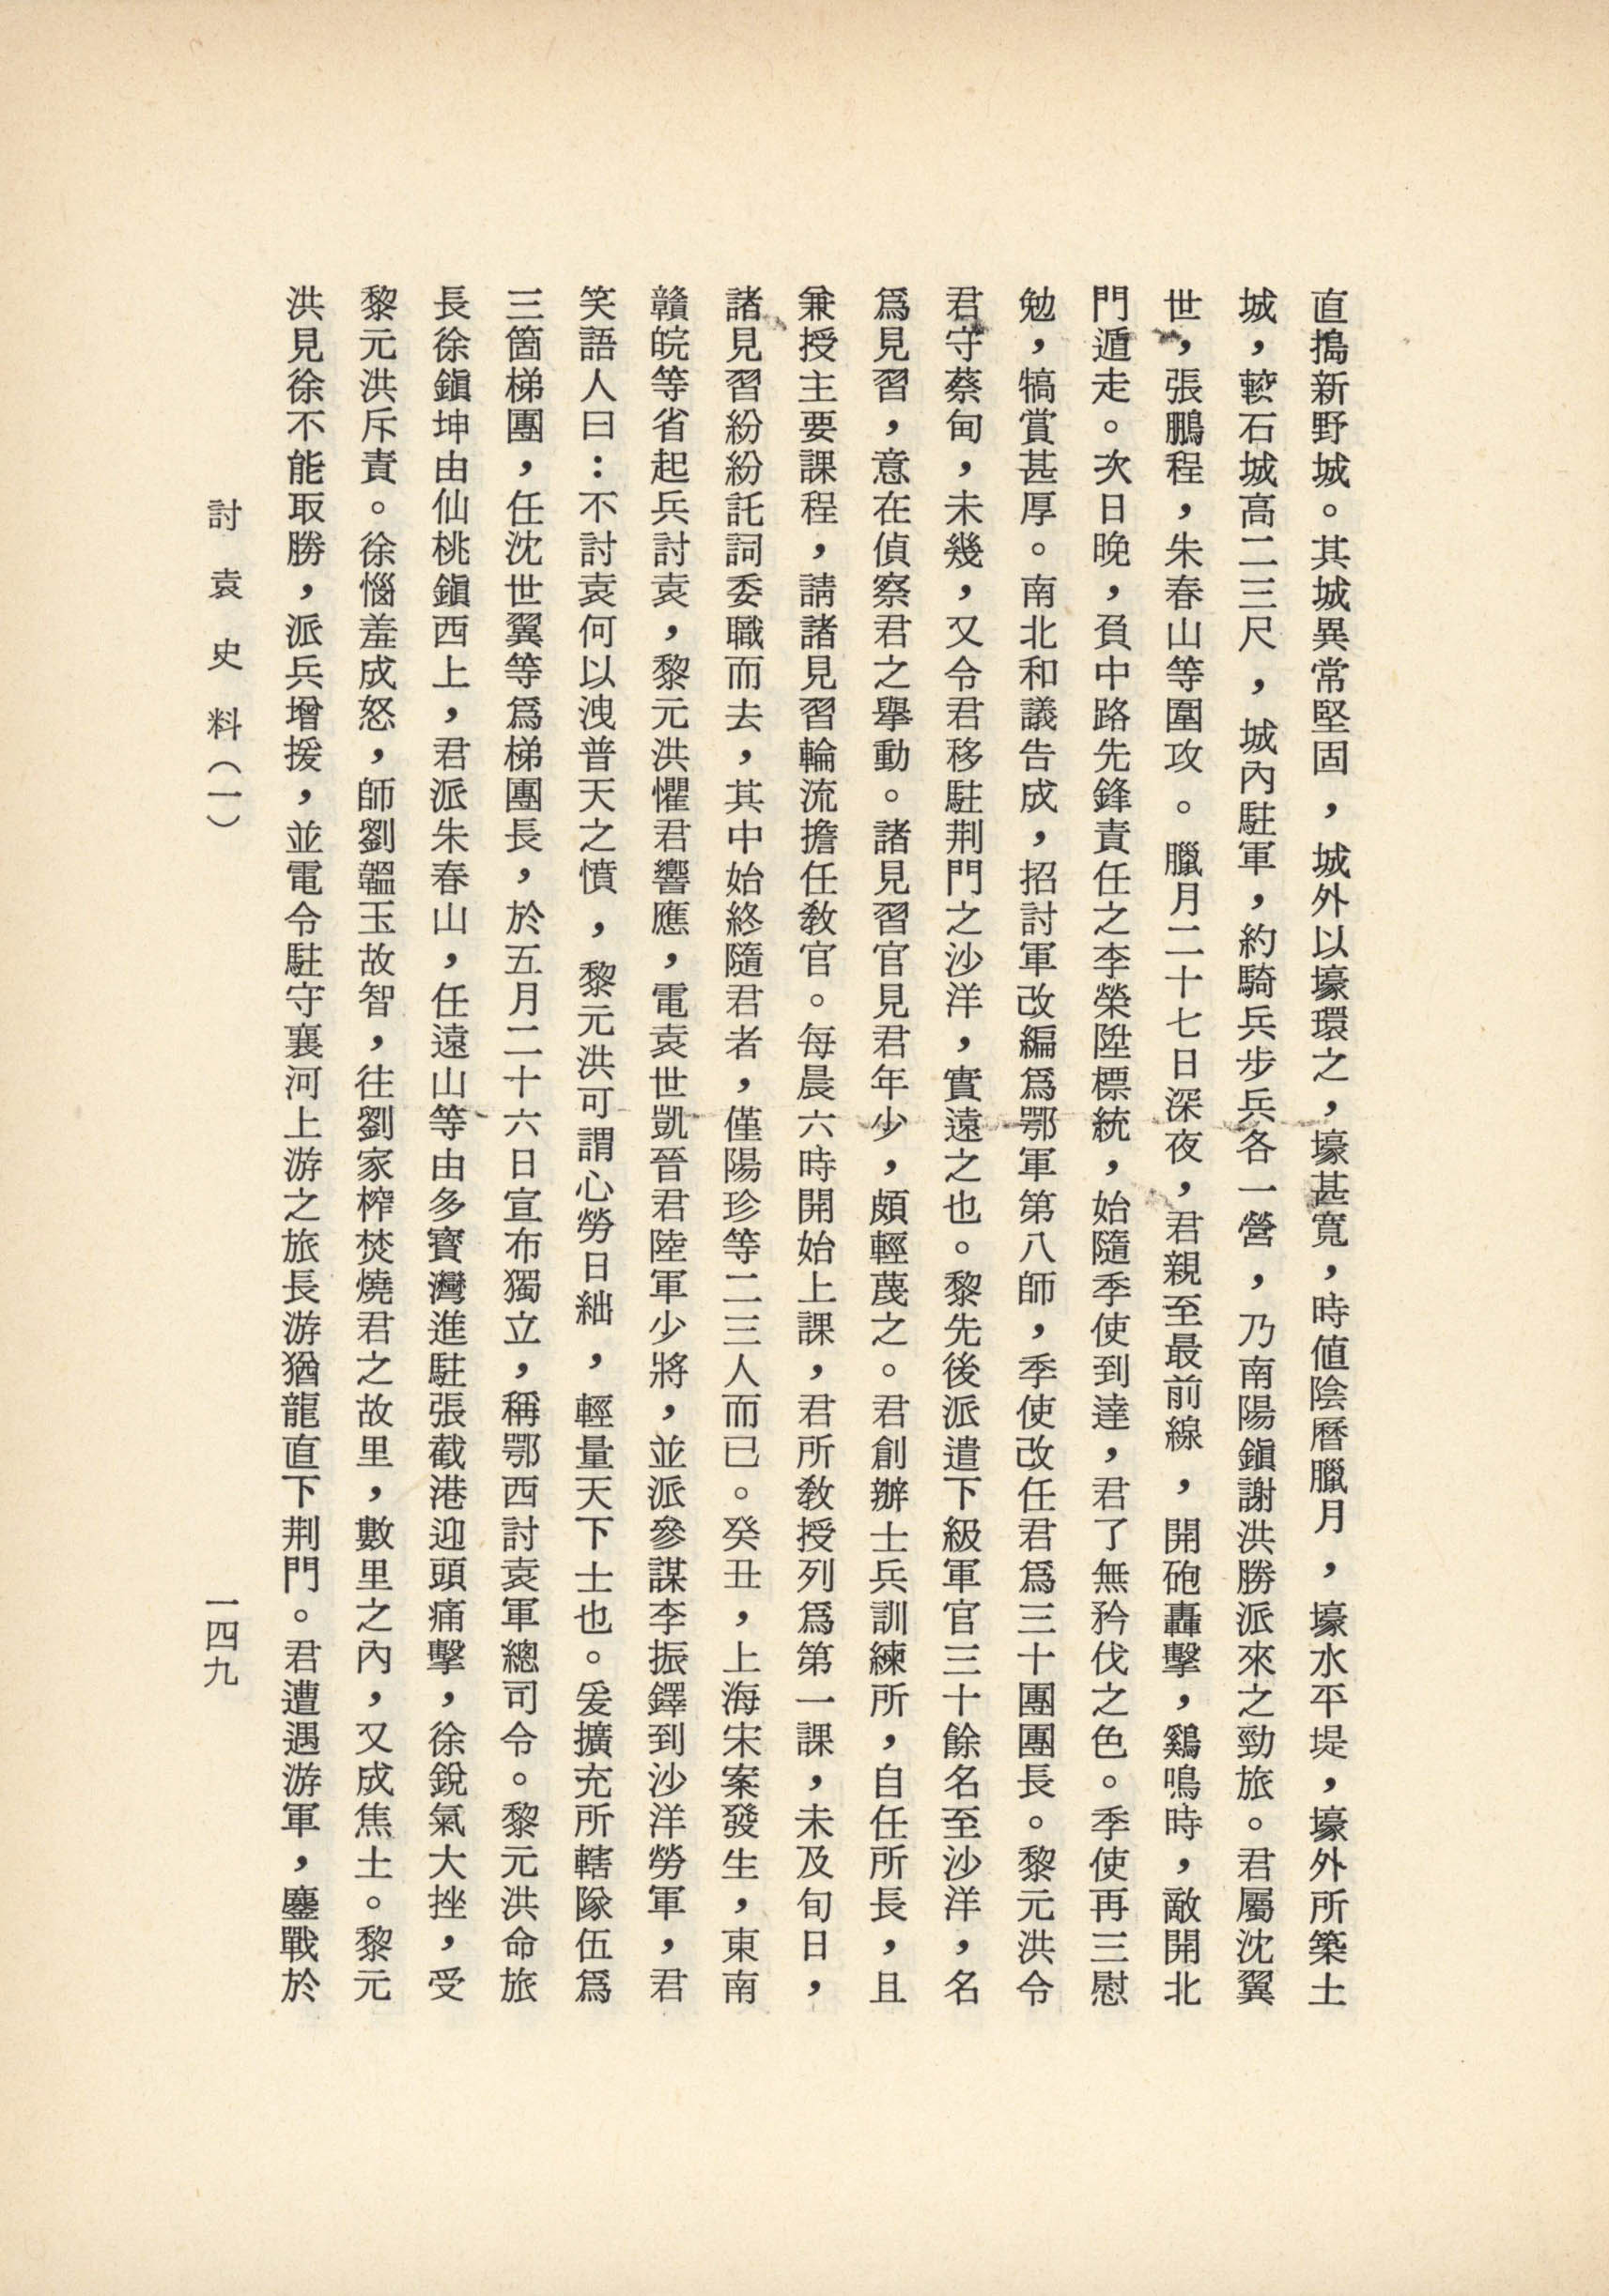 直搗新野城。其城異常堅固，城外以壕環之，壕甚寬，時値陰曆臘月，壕水平堤，壕外所築土
城，較石城高二三尺，城內駐軍，約騎兵步兵各一營，乃南陽鎭謝洪勝派來之勁旅。君屬沈翼
世，張鵬程，朱春山等圍攻。臘月二十七日深夜，君親至最前線，開砲轟擊，鷄鳴時，敵開北
門遁走。次日晚，負中路先鋒責任之李榮陞標統，始隨季使到達，君了無矜伐之色。季使再三慰
勉，犒賞甚厚。南北和議告成，招討軍改編爲鄂軍第八師，季使改任君爲三十團團長。黎元洪令
君守蔡甸，未幾，又令君移駐荆門之沙洋，實遠之也。黎先後派遣下級軍官三十餘名至沙洋，名
爲見習，意在偵察君之擧動。諸見習官見君年少，頗輕蔑之。君創辦士兵訓練所，自任所長，且
兼授主要課程，請諸見習輪流擔任教官。每晨六時開始上課，君所教授列爲第一課，未及旬日，
諸見習紛紛託詞委職而去，其中始終隨君者，僅陽珍等二三人而已。癸丑，上海宋案發生，東南
贛皖等省起兵討袁，黎元洪懼君響應，電袁世凱晉君陸軍少將，並派參謀李振鐸到沙洋勞軍，君
笑語人曰：不討袁何以洩普天之憤，黎元洪可謂心勞日絀，輕量天下士也。爰擴充所轄隊伍爲
三箇梯團，任沈世翼等爲梯團長，於五月二十六日宣布獨立，稱鄂西討袁軍總司令。黎元洪命旅
長徐鎭坤由仙桃鎭西上，君派朱春山，任遠山等由多寶灣進駐張截港迎頭痛擊，徐銳氣大挫，受
黎元洪斥責。徐惱羞成怒，師劉韞玉故智，往劉家榨焚燒君之故里，數里之內，又成焦土。黎元
洪見徐不能取勝，派兵增援，並電令駐守襄河上游之旅長游猶龍直下荆門。君遭遇游軍，鏖戰於
討袁史料（一）
一四九